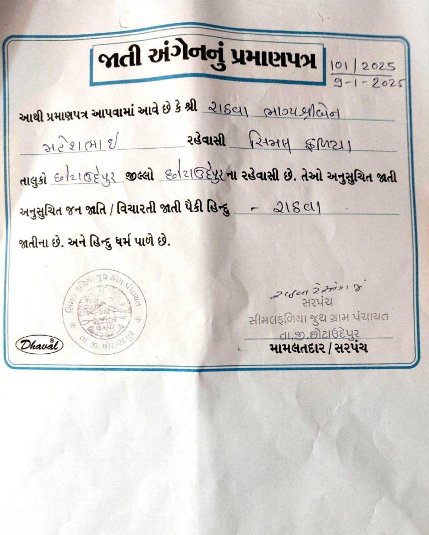 જાતી અંગેનનું પ્રમાણપત્ર
101/2025
9-1-2025
આથી પ્રમાણપત્ર આપવામાં આવે છે કે શ્રી રાઠવા ભાગ્યશ્રીબેન
મહેશભાઈ રહેવાસી સિમળ ફળિયા
તાલુકો છોટાઉદેપુર જીલ્લો છોટાઉદેપુર ના રહેવાસી છે. તેઓ અનુસુચિત જાતી
અનુસુચિત જન જાતિ / વિચારતી જાતી પૈકી હિન્દુ - રાઠવા
જાતીના છે. અને હિન્દુ ધર્મ પાળે છે.
સરપંચ
સીમલફળિયા જુથ ગ્રામ પંચાયત
તા.જી.છોટાઉદેપુર
Dhaval
મામલતદાર / સરપંચ